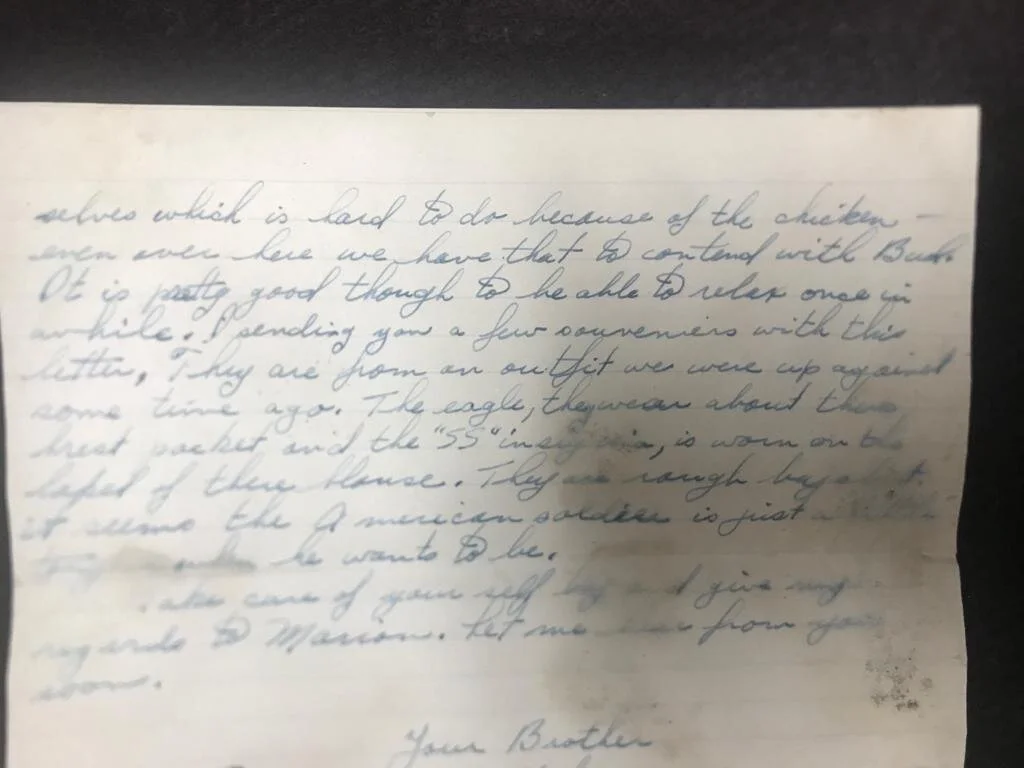 selves which is hard to do because of the chicken -
even over here we have that to contend with
It is pretty good though to be able to relax once in
awhile. I sending you a few souveniers with this
letter, They are from an outfit we were up against
some time ago. The eagle, they wear about there
brest pocket and the "SS" insignia, is worn on the
lapel of there blouse. They are rough
it seems the American soldier is just a
he wants to be.
take care of your self and give my
regards to Marion. Let me hear from you
soon.
Your Brother